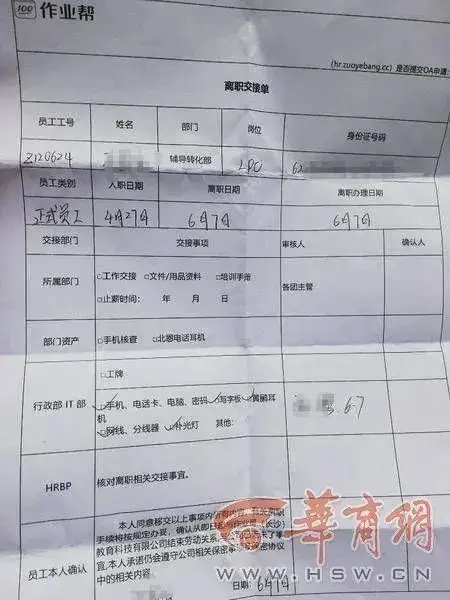 100 作业帮
(hr.zuoyebang.cc) 是否提交OA申请:
离职交接单
员工工号 姓名 部门 岗位 身份证号码
2120624 辅导转化部 LPO 62
员工类别 入职日期 离职日期 离职办理日期
正式员工 4月27日 6月7日 6月7日
交接部门 交接事项 审核人 确认人
所属部门 □工作交接 □文件/用品资料 □培训手册
□止薪时间: 年 月 日
各团主管
部门资产 □手机核查 □北恩电话耳机
□工牌
行政部 IT 部 □手机、电话卡、电脑、密码 □写字板 □黄鹂耳
机
□网线、分线器 □补光灯 其他:
6.7
HRBP 核对离职相关交接事宜。
员工本人确认
本人同意移交以上事项内所有内容,有关离职
手续将按规定办妥,确认从即日起与作业帮(长沙)
教育科技有限公司结束劳动关系
宜,本人承诺仍会遵守公司相关保密事 及保密协议
中的相关内容
日期: 6月7日
华商网
WWW.HSW.CN